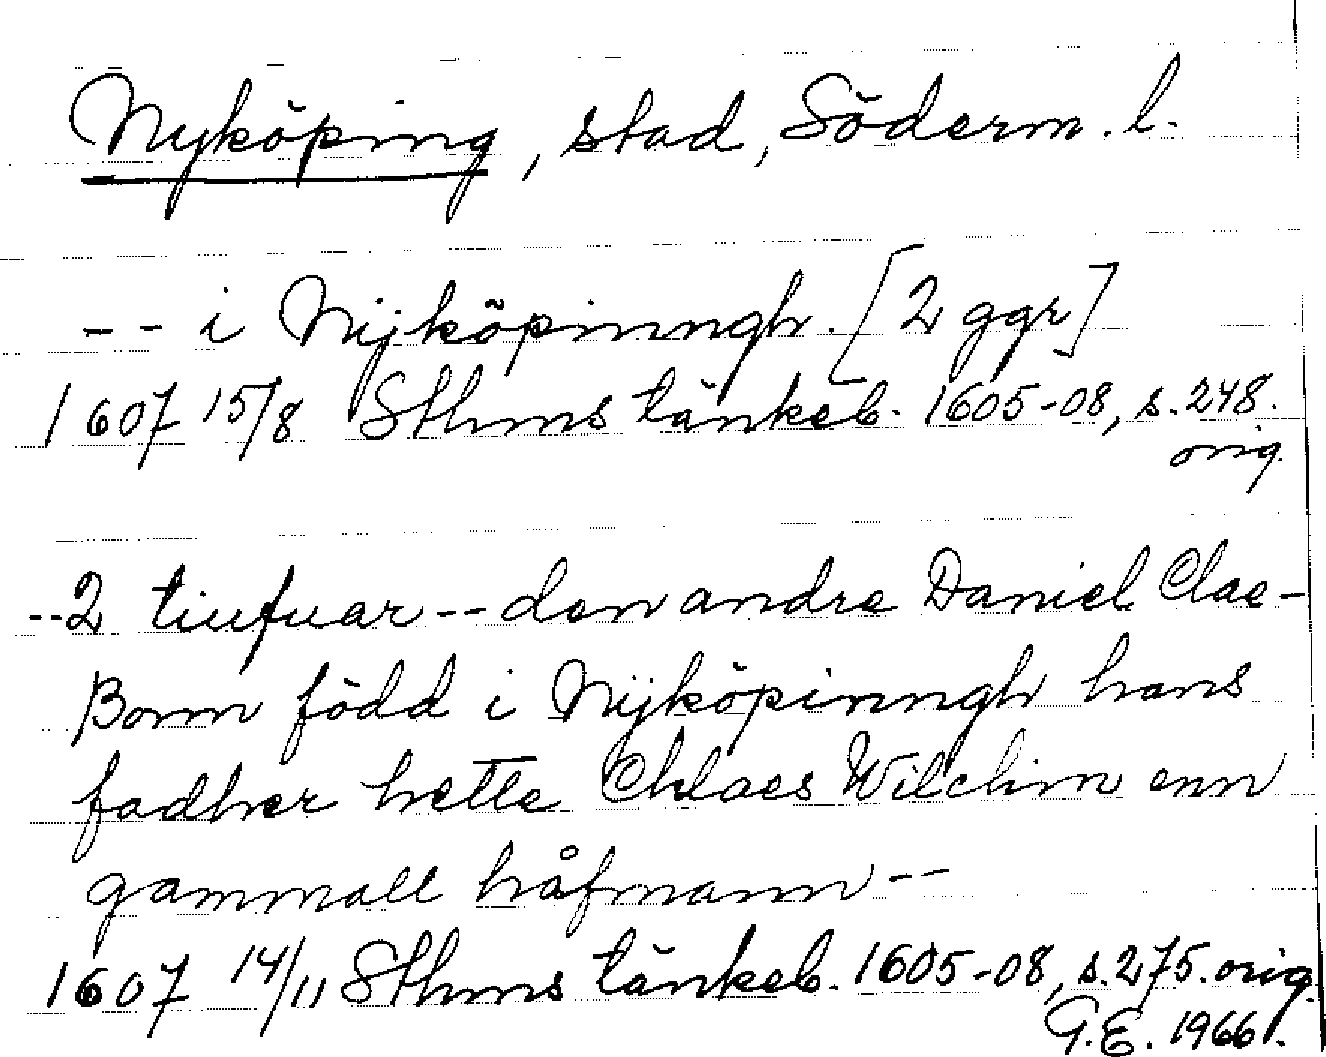 Nyköping, stad, Söderm. l.
-- i Nijköpinngh. [2 ggr]
1607 15/8 Sthms tänkeb. 1605-08, s. 248.
orig.
--2 tiufuar -- den andre Daniel Clae-
Bonn född i Nijköpinngh hans
fadher hette Chlaes Wilchim enn
gammall håfmann --
1607 14/11 Sthms tänkeb. 1605-08, s. 275. orig.
G.E. 1966.